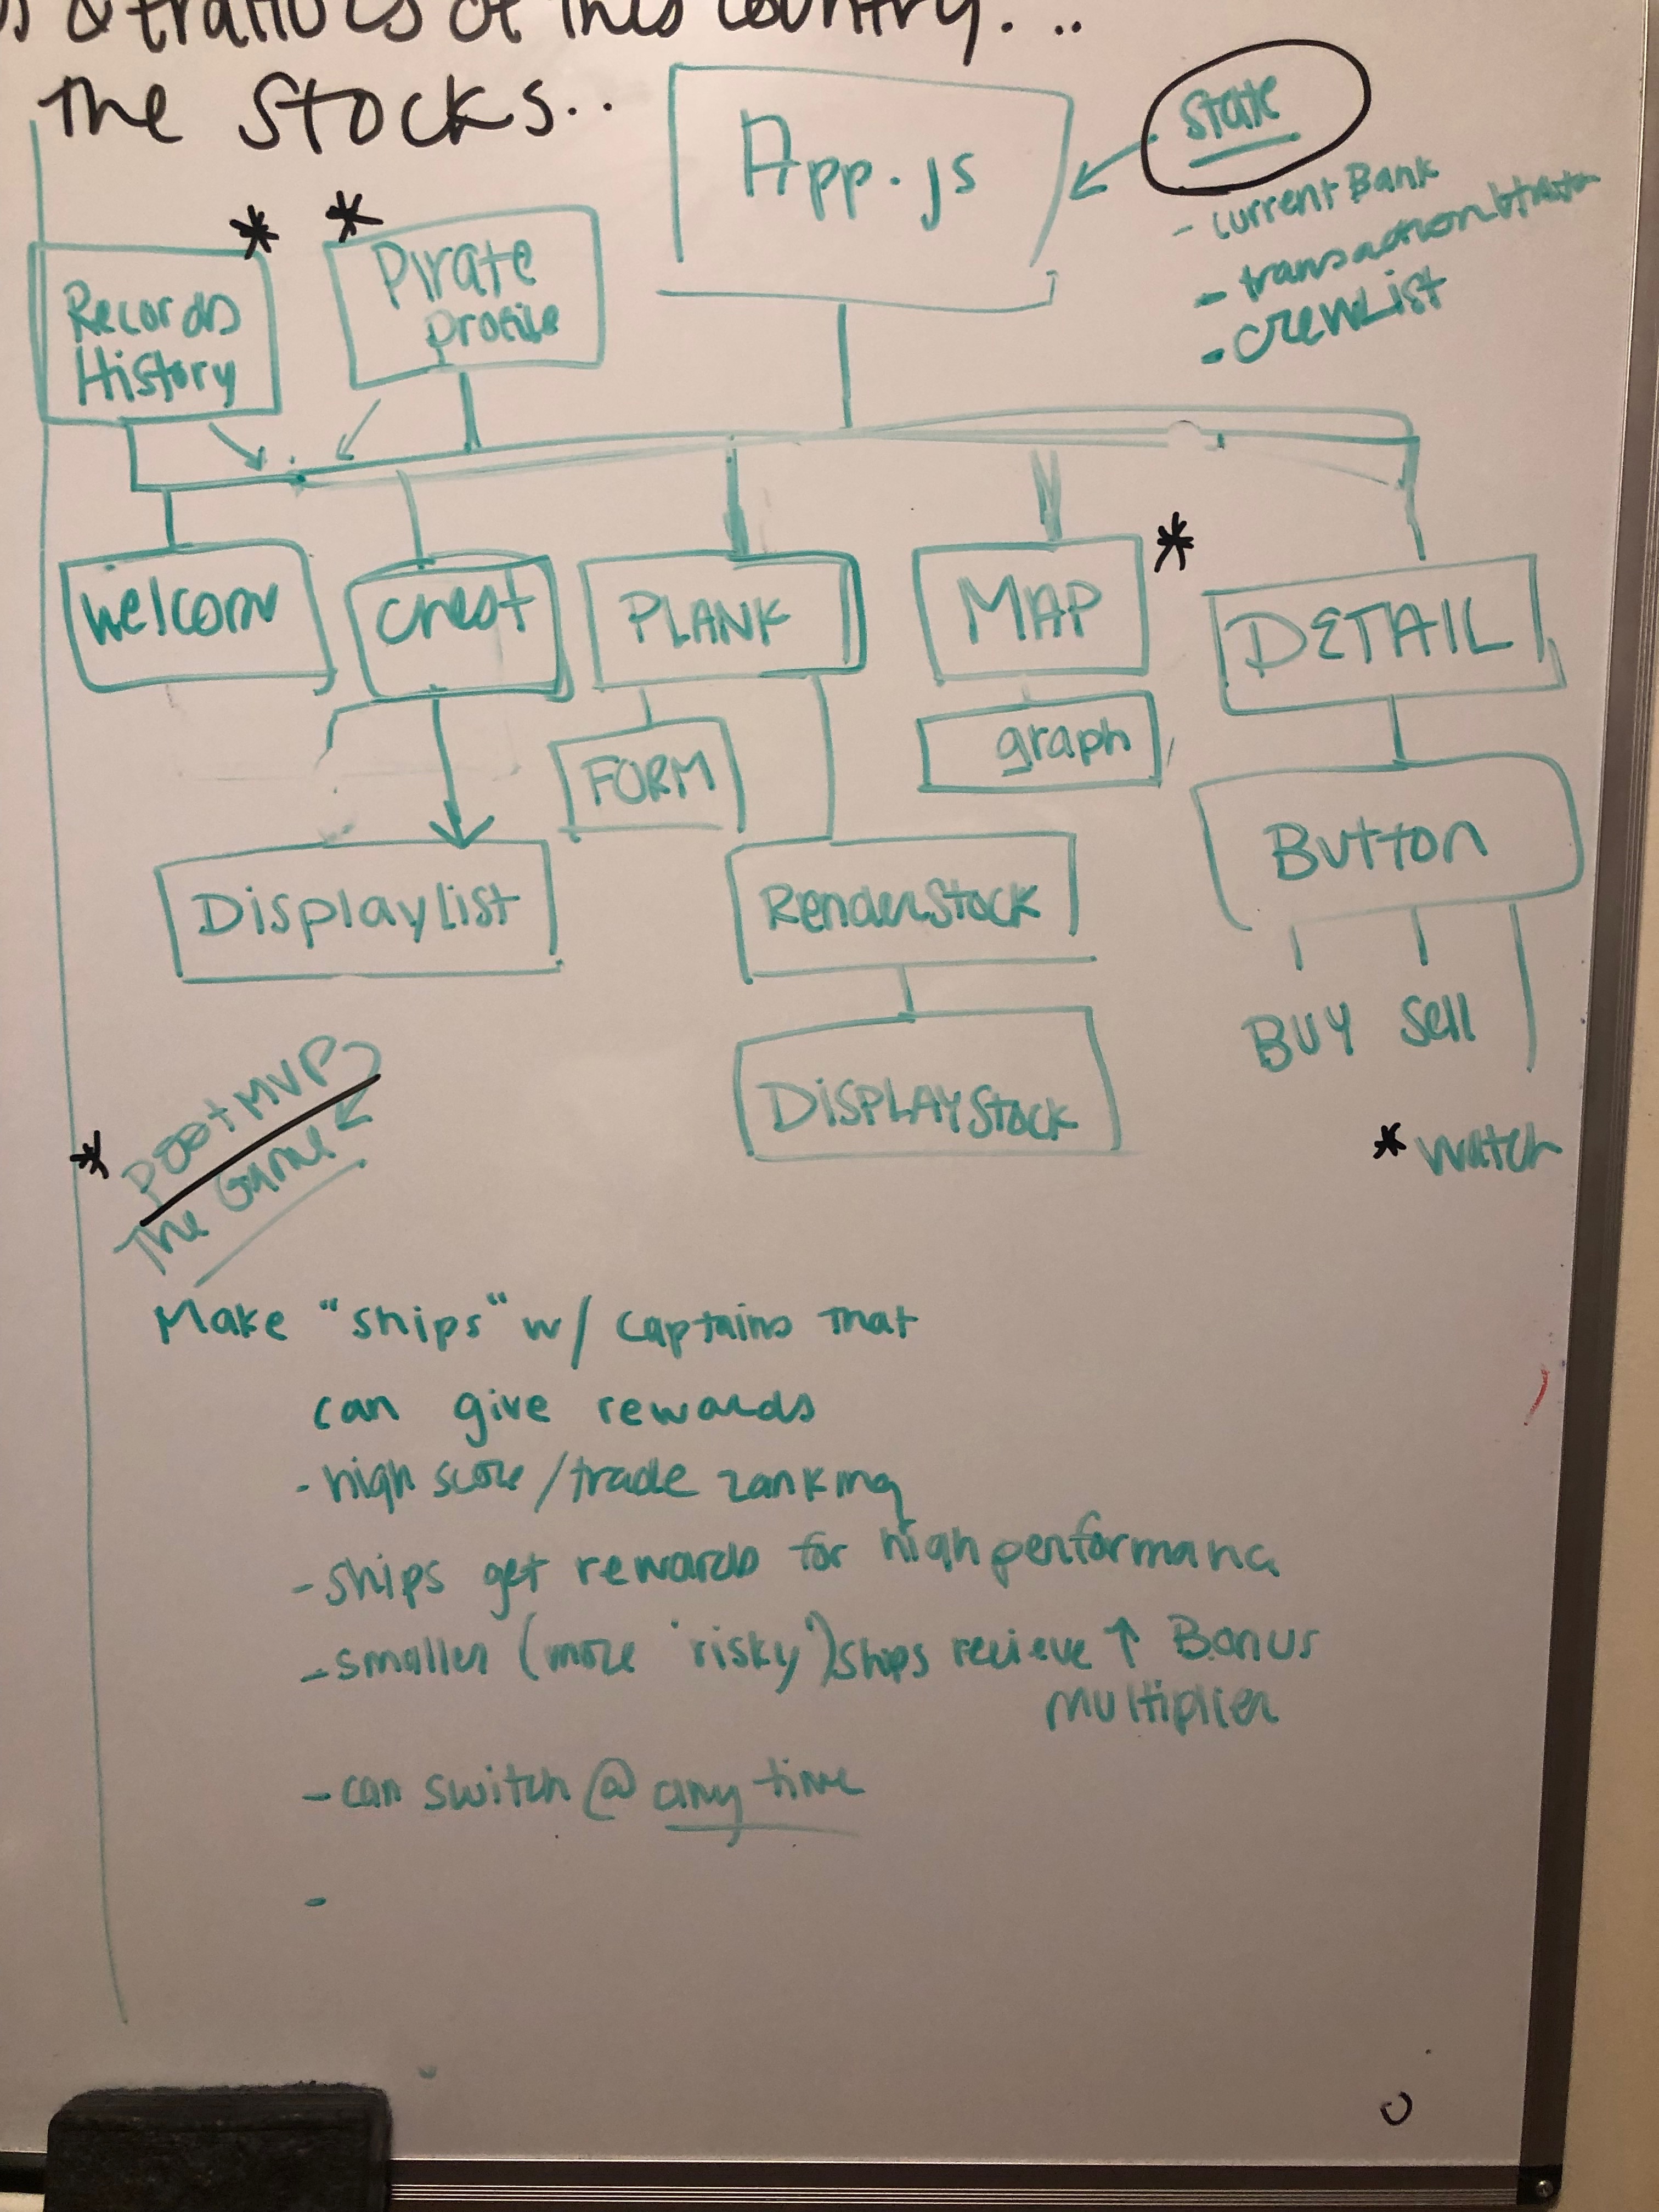 of this country...
the Stocks..
App.js
State
- currentBank
- transaction
- crewList
* *
Records
History
Pirate
profile
Welcome
Chest
PLANK
MAP *
DETAIL
FORM
graph
Button
Displaylist
RenderStock
BUY Sell
DISPLAYStock
* watch
* Post MVP
The Game
Make "ships" w/ captains that
can give rewards
- high score/trade ranking
- ships get rewards for high performanc
- smaller (more 'risky') ships recieve ↑ Bonus
multiplier
- can switch @ any time
-